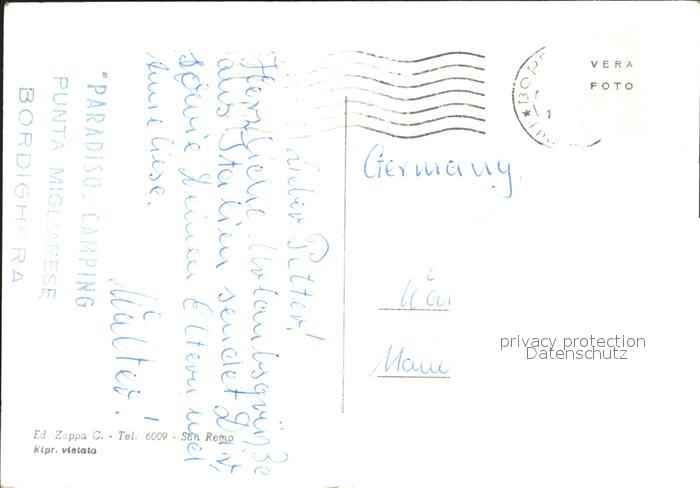 Lieber Petter!
Herzliche Urlaubsgrüße
aus Italien sendet Dir,
sowie Deinen Eltern und
Anneliese.
Walter!
"PARADISO, CAMPING
PUNTA MIGLIARESE
BORDIGHERA
VERA
FOTO
Germany
privacy protection
Datenschutz
Ed. Zappa C. - Tel. 6009 - San Remo
Ripr. vietata